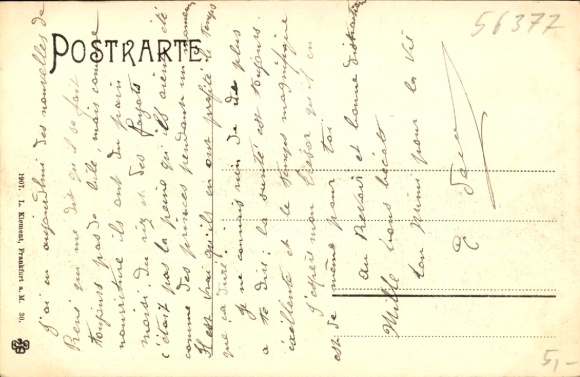 56377
POSTKARTE.
J'ai eu aujourdhui des nouvelles de
René qui me dit qu'il se fait
toujours pas de bile, mais comme
nourriture ils ont du pain
moisi, du riz et des fayots
c'était pas la peine qu'ils aient été
comme des princes pendant un moment
Il est vrai qu'ils en ont profité le temps
que ça durait.
Je ne connais rien de plus
a te dire; la santé est toujours
excellente et le temps magnifique
J'espère mon trésor qu'il en
est de même pour toi
Au Revoir et bonne distraction
Mille bons baisers
ton Mimi pour la vie
1907. L. Klement, Frankfurt a. M. 30.
5,-